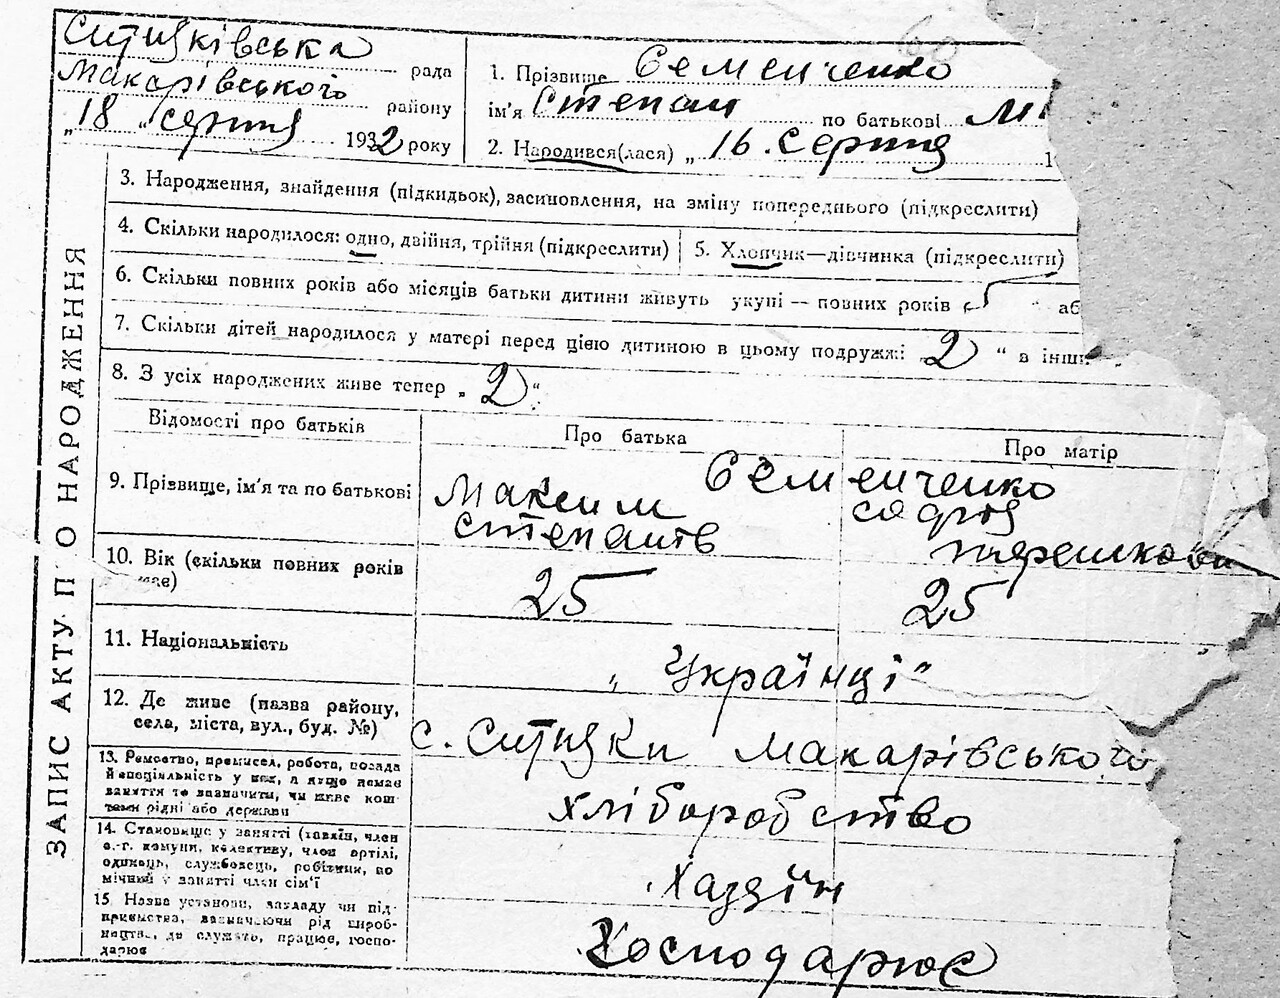 Ситняківська рада
Макарівського району
„18" серпня 1932 року
1. Прізвище Семенченко
ім'я Степан по батькові М
2. Народився(лася) „16. серпня 1
ЗАПИС АКТУ ПРО НАРОДЖЕННЯ
3. Народження, знайдення (підкидьок), засиновлення, на зміну попереднього (підкреслити)
4. Скільки народилося: одно, двійня, трійня (підкреслити)
5. Хлопчик—дівчинка (підкреслити)
6. Скільки повних років або місяців батьки дитини живуть укупі — повних років „5" аб
7. Скільки дітей народилося у матері перед цією дитиною в цьому подружжі „2" в інш
8. З усіх народжених живе тепер „2"
Відомості про батьків
Про батька
Про матір
9. Прізвище, ім'я та по батькові
Семенченко
Максим
Степанів
Софія
10. Вік (скільки повних років має)
25
25
11. Національність
„Українці"
12. Де живе (назва району,
села, міста, вул., буд. №)
с. Ситняки Макарівського
13. Ремество, промисел, робота, посада
й спеціальність у них, а якщо немає
заняття то зазначити, чи живе кош
тами рідні або держави
хліборобство
14. Становище у занятті (хазяїн, член
с.-г. комуни, колективу, член артілі,
одинець, службовець, робітник, по
мічний у занятті член сім'ї
Хазяїн
15. Назва установи, закладу чи під-
приємства, зазначаючи рід вироб-
ництва, де служить, працює, госпо-
дарює
Господарює